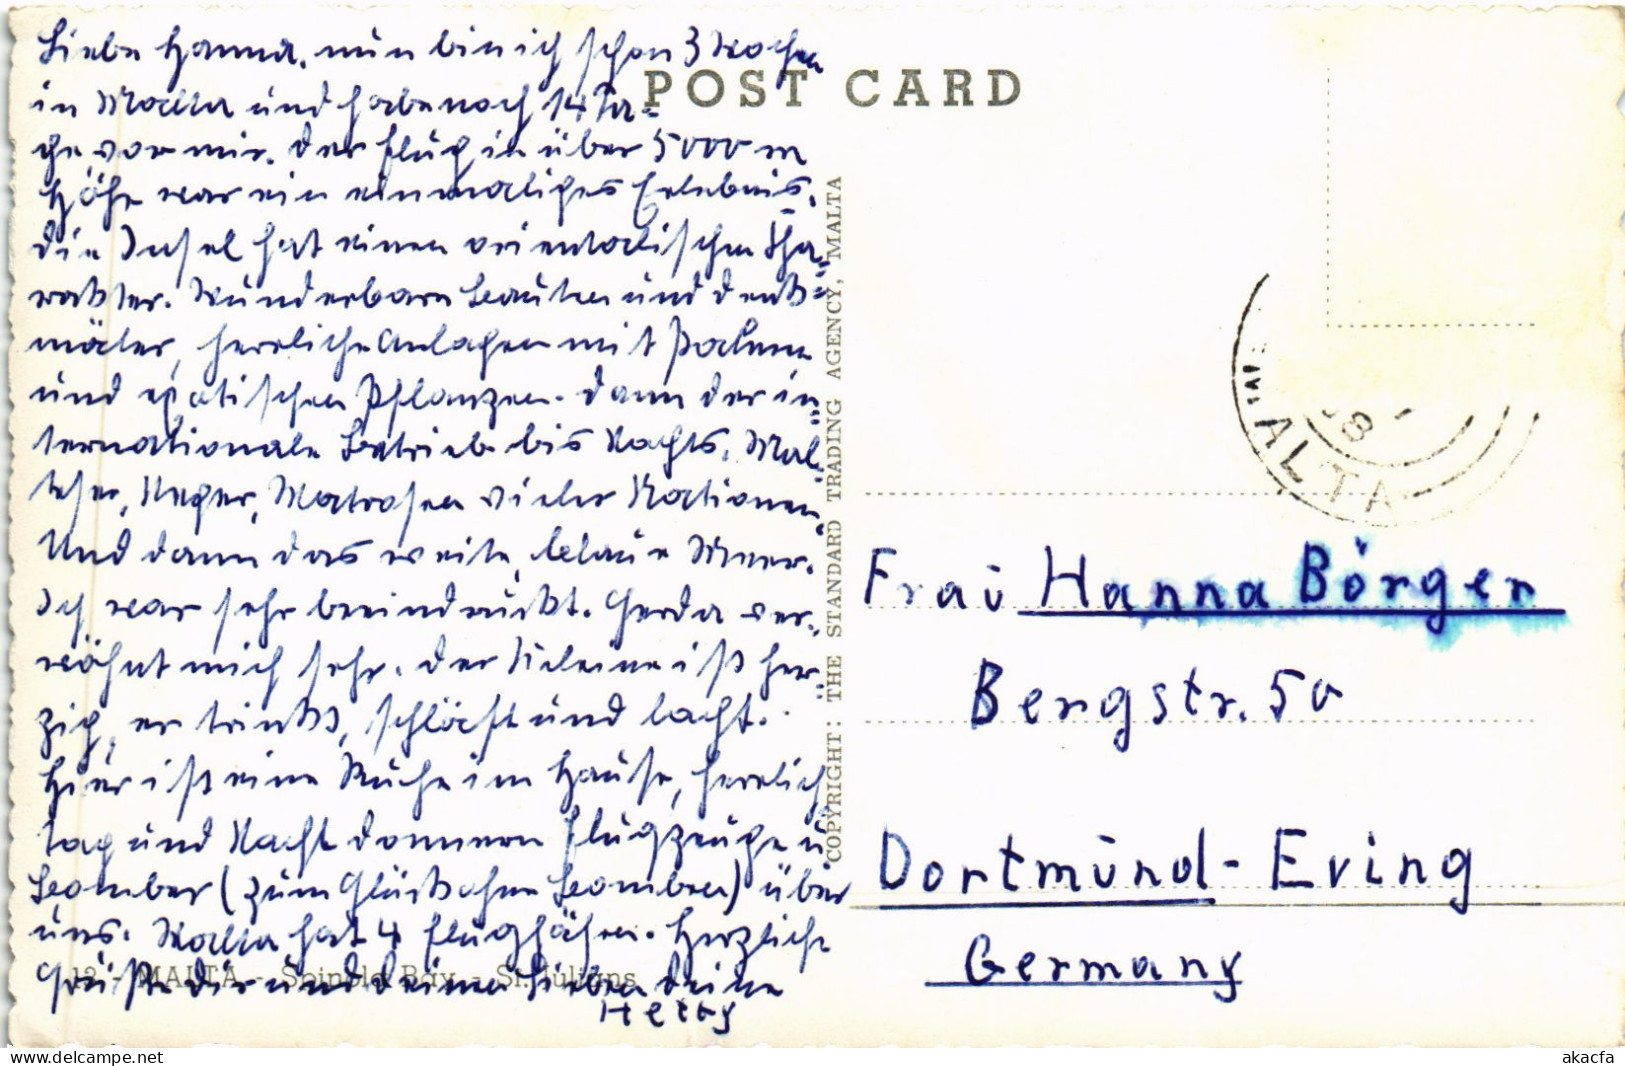 Liebe Hanna, nun bin ich schon 3 Wochen
in Malta und habe noch 14 Ta=
ge vor mir. Der Flug in über 5000 m
Höhe war ein einmaliges Erlebnis.
Die Insel hat einen orientalischen Cha=
rakter. Wunderbare Bauten und Denk=
mäler, herrliche Anlagen mit Palmen
und exotischen Pflanzen. Dann der in=
ternationale Betrieb bis Nachts. Mal=
teser, Neger, Matrosen vieler Nationen.
Und dann das weite, blaue Meer.
Ich war sehr beeindruckt. Gerda ver=
wöhnt mich sehr. Der Kleine ist her=
zig, er trinkt, schläft und lacht.
Hier ist eine Ruhe im Hause, herrlich
tag und Nacht donnern Flugzeuge u.
Bomber (zum Glück ohne Bomben) über
uns. Malta hat 4 Flughäfen. Herzliche
Grüße dir und deinen Lieben deine
Hetty
12 - MALTA - Spinola Bay - St. Julians
POST CARD
COPYRIGHT: THE STANDARD TRADING AGENCY, MALTA
MALTA
Frau Hanna Börger
Bergstr. 50
Dortmund-Eving
Germany
www.delcampe.net
akacfa